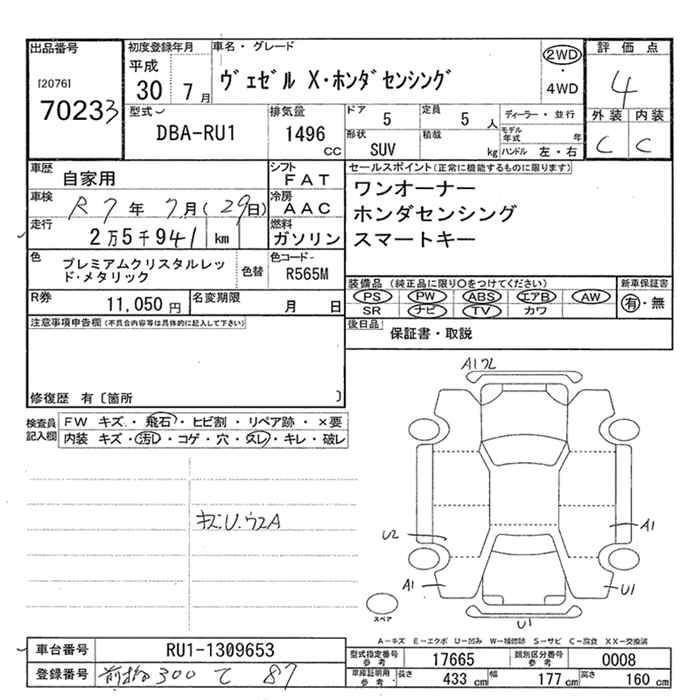 出品番号
[2076]
70233
初度登録年月
平成
30 7月
車名・グレード
ヴェゼル X・ホンダセンシング
2WD
・
4WD
評価点
4
外装 内装
C C
型式
DBA-RU1
排気量
1496
CC
ドア 5
定員 5 人
形状 SUV
積載 kg
ディーラー・並行
モデル年式 年
ハンドル 左・右
車歴 自家用
車検 R7年7月(29日)
走行 2万5千941 km
シフト FAT
冷房 AAC
燃料 ガソリン
色 プレミアムクリスタルレッド・メタリック
色替
色コード R565M
R券 11,050円
名変期限 月 日
セールスポイント(正常に機能するものに限ります)
ワンオーナー
ホンダセンシング
スマートキー
装備品 (純正品に限り○をつけてください)
PS PW ABS エアB AW
SR ナビ TV カワ
新車保証書
有・無
後日品 保証書・取説
注意事項申告欄(不具合内容等は具体的に記入して下さい)
修復歴 有〔箇所 〕
検査員記入欄
FW キズ・飛石・ヒビ割・リペア跡・×要
内装 キズ・汚レ・コゲ・穴・スレ・キレ・破レ
A1
U2
A1
A1
U1
U1
スペア
A−キズ E−エクボ U−凹み W−補修跡 S−サビ C−腐食 XX−交換済
車台番号 RU1-1309653
登録番号 300 て 87
型式指定番号 参考 17665
類別区分番号 参考 0008
車庫証明用 参考 長さ 433 cm 幅 177 cm 高さ 160 cm